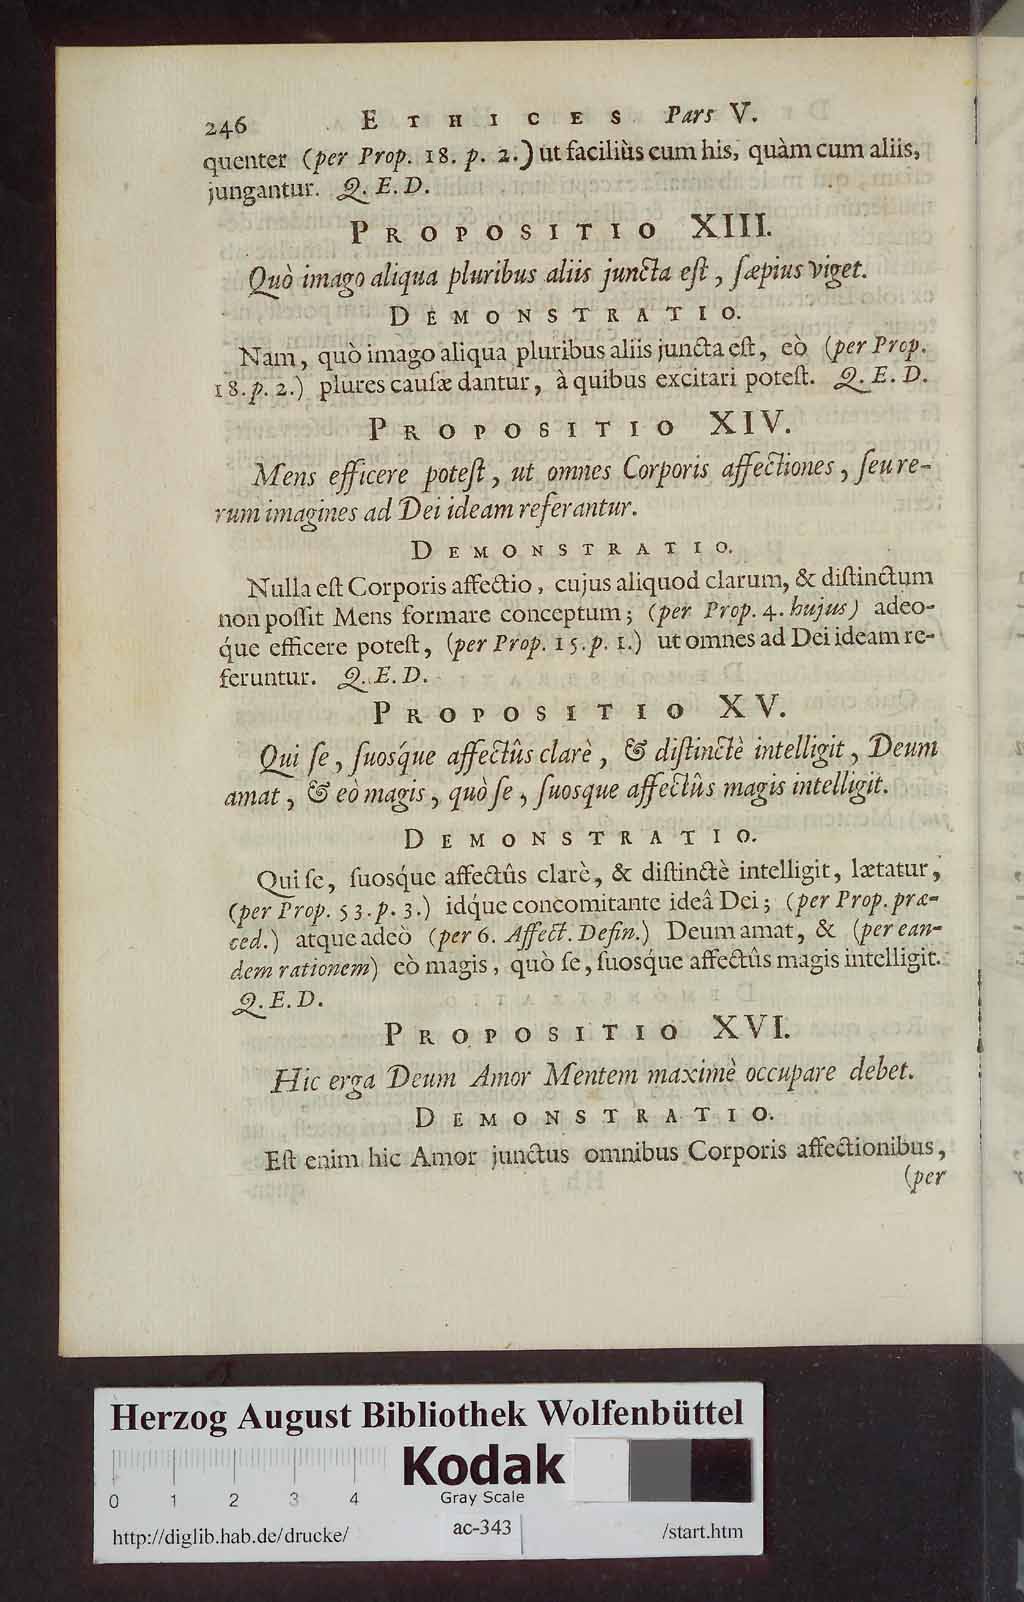 246 ETHICES Pars V.
quenter (per Prop. 18. p. 2.) ut faciliùs cum his, quàm cum aliis,
jungantur. Q. E. D.
PROPOSITIO XIII.
Quò imago aliqua pluribus aliis juncta eſt, ſæpius viget.
DEMONSTRATIO.
Nam, quò imago aliqua pluribus aliis juncta eſt, eò (per Prop.
18. p. 2.) plures cauſæ dantur, à quibus excitari poteſt. Q. E. D.
PROPOSITIO XIV.
Mens efficere poteſt, ut omnes Corporis affectiones, ſeu re-
rum imagines ad Dei ideam referantur.
DEMONSTRATIO.
Nulla eſt Corporis affectio, cujus aliquod clarum, & diſtinctum
non poſſit Mens formare conceptum; (per Prop. 4. hujus) adeo-
q́ue efficere poteſt, (per Prop. 15. p. 1.) ut omnes ad Dei ideam re-
feruntur. Q. E. D.
PROPOSITIO XV.
Qui ſe, ſuosq́ue affectûs clarè, & diſtinctè intelligit, Deum
amat, & eò magis, quò ſe, ſuosque affectûs magis intelligit.
DEMONSTRATIO.
Qui ſe, ſuosq́ue affectûs clarè, & diſtinctè intelligit, lætatur,
(per Prop. 53. p. 3.) idq́ue concomitante ideâ Dei; (per Prop. præ-
ced.) atque adeò (per 6. Affect. Defin.) Deum amat, & (per ean-
dem rationem) eò magis, quò ſe, ſuosq́ue affectûs magis intelligit.
Q. E. D.
PROPOSITIO XVI.
Hic erga Deum Amor Mentem maximè occupare debet.
DEMONSTRATIO.
Eſt enim hic Amor junctus omnibus Corporis affectionibus,
(per
Herzog August Bibliothek Wolfenbüttel
Kodak
0 1 2 3 4 Gray Scale
http://diglib.hab.de/drucke/ ac-343 /start.htm